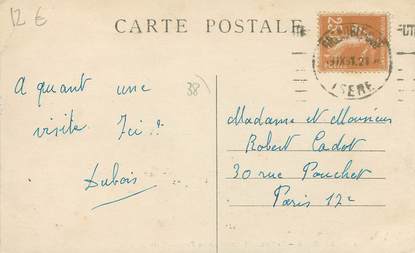 12 €
CARTE POSTALE
25
ISERE
38)
A quant une
visite Ici ?
Dubois
Madame et Monsieur
Robert Cadot
30 rue Pouchet
Paris 12e